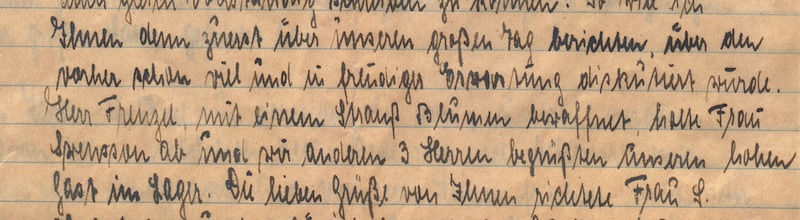 auch gleich vollständig schreiben zu können. So will ich
Ihnen denn zuerst über unseren großen Tag berichten, über den
vorher schon viel und in freudiger Erwartung diskutiert wurde.
Herr Frenzel, mit einem Strauß Blumen bewaffnet, holte Frau
Svensson ab und wir anderen 3 Herren begrüßten unseren hohen
Gast im Lager. Die lieben Grüße von Ihnen richtete Frau S.